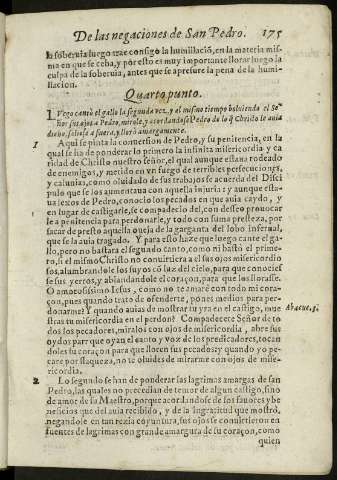 De las negaciones de San Pedro. 175
la soberuia luego trae consigo la humillació, en la materia mis-
ma en que se ceba, y por esto es muy importante llorar luego la
culpa de la soberuia, antes que se apresure la pena de la humi-
llacion.
Quarto punto.
Luego cantò el gallo la segunda vez, y al mismo tiempo boluiendo el Se-
ñor sus ojos a Pedro, mirole, y acordandose Pedro de lo q̃ Christo le auia
dicho, saliose a fuera, y lloró amargamente.
1 Aqui se pinta la conuersion de Pedro, y su penitencia, en la
qual se ha de ponderar lo primero la infinita misericordia y ca
ridad de Christo nuestro señor, el qual aunque estaua rodeado
de enemigos, y metido en vn fuego de terribles persecuciones,
y calunias, como oluidado de sus trabajos se acuerda del Disci
pulo que se los aumentaua con aquella injuria: y aunque esta-
ua lexos de Pedro, conocio los pecados en que auia caydo, y
en lugar de castigarle, se compadecio del, con deseo prouocar
le a penitencia para perdonarle, y todo con suma presteza, por
sacar de presto aquella oueja de la garganta del lobo infernal,
que se la auia tragado. Y para esto haze que luego cante el ga-
llo, pero no bastara el segundo canto, como ni bastó el prime-
ro, si el mismo Christo no conuirtiera a el sus ojos misericordio
sos, alumbrandole los suyos có luz del cielo, para que conocies
se sus yerros, y ablandandole el coraçon, para que los llorasse.
O amorosissimo Iesus, como no te amaré con todo mi cora-
çon, pues quando trato de ofenderte, pones medios para per-
donarme? Y quando auias de mostrar tu yra en el castigo, mue
stras tu misericordia en el perdon? Compadecete Señor de to
dos los pecadores, miralos con ojos de misericordia, abre sus
oydos para que oyan el canto y voz de los predicadores, tocan
doles su coraçon para que lloren sus pecados: y quando yo pe-
care por flaqueza, no te oluides de mirarme con ojos de mise-
ricordia.
Abacuc, 3.
2 Lo segundo se han de ponderar las lagrimas amargas de san
Pedro, las quales no procedian de temor de algun castigo, sino
de amor de su Maestro, porque acordandose de los fauores y be
neficios que del auia recibido, y de la ingratitud que mostró,
negandole en tan rezia coyuntura, sus ojos se conuirtieron en
fuentes de lagrimas con grande amargura de su coraçon, como
quien